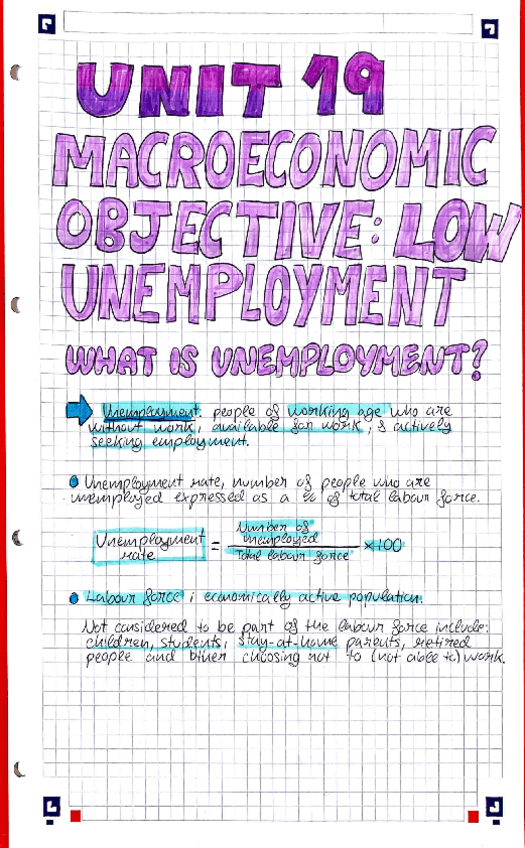 UNIT 19
MACROECONOMIC
OBJECTIVE: LOW
UNEMPLOYMENT
WHAT IS UNEMPLOYMENT?
Unemployment: people of working age who are
without work, available for work, & actively
seeking employment.
Unemployment rate, number of people who are
unemployed expressed as a % of total labour force.
Unemployment rate = Number of unemployed / Total labour force × 100
Labour force: economically active population.
Not considered to be part of the labour force include:
children, students, stay-at-home parents, retired
people and other choosing not to (not able to) work.